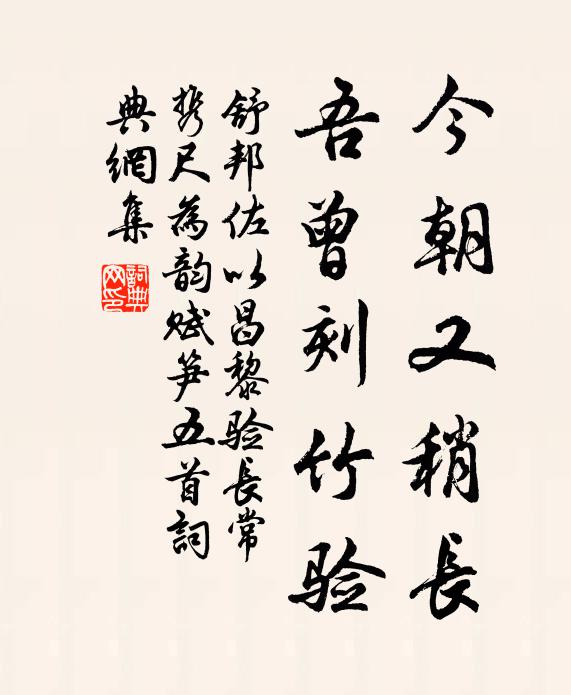 今朝又稍長
吾曾刻竹验
舒邦佐以昌黎验長常
携尺為韵赋笋五首詞
典網集
詞典網印